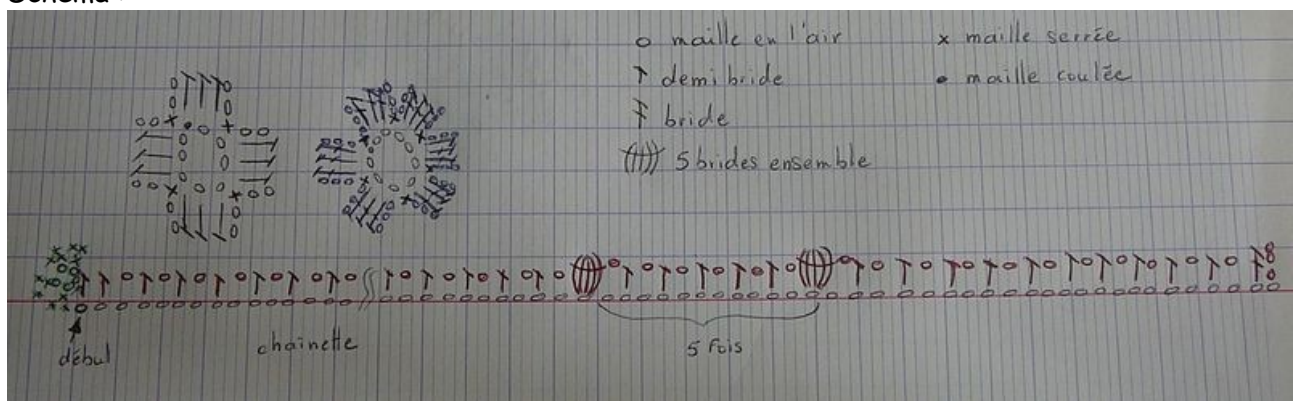 o maille en l'air
x maille serrée
demi bride
• maille coulée
bride
5 brides ensemble
début
chainette
5 fois